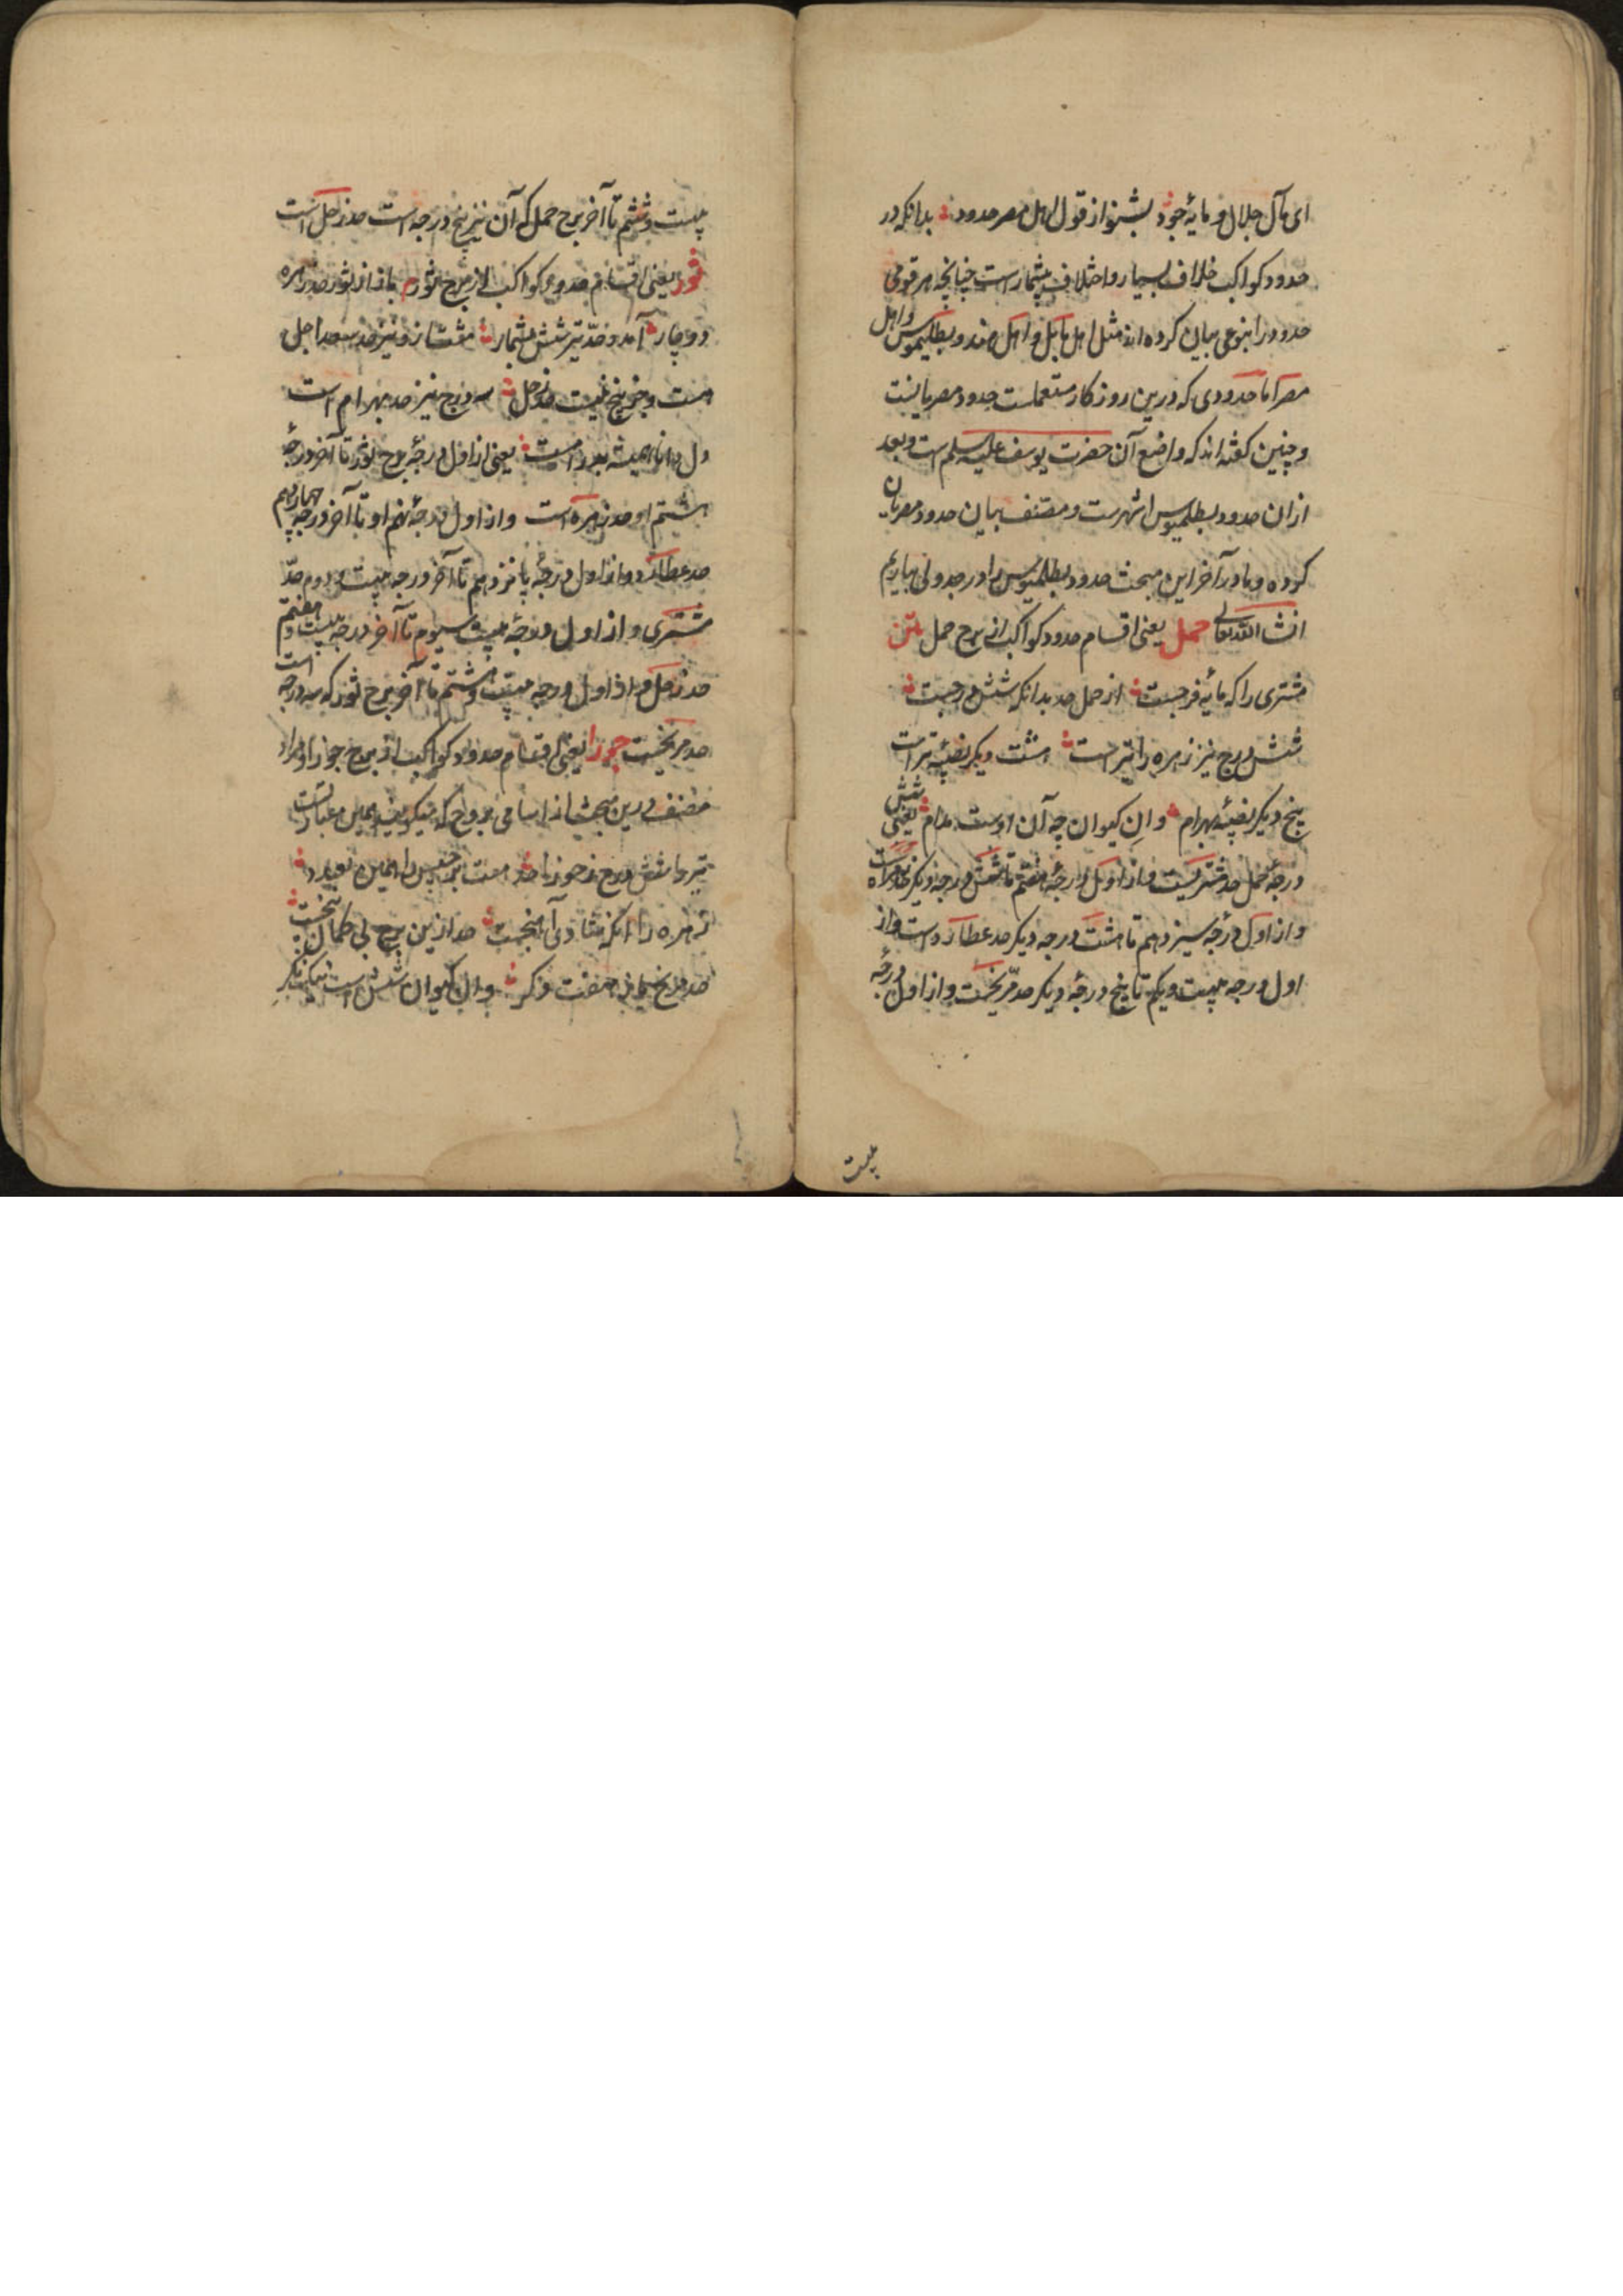 ای مآل جلال و مایهٔ جود بشنو از قول اهل مصر حدود بدانکه در
حدود کواکب خلاف بسیار و اختلاف بیشمار است چنانچه هر قومی
حدود را بنوعی بیان کرده اند مثل اهل بابل و اهل هند و بطلیموس و اهل
مصر اما حدودی که درین روزکار مستعملست حدود مصریانست
و چنین کفته اند که واضع آن حضرت یوسف علیه سلم است و بعد
از ان حدود بطلمیوس اشهرست و مصنف بیان حدود مصریان
کرده و ما در آخر این مبحث حدود بطلمیوس را در جدولی بیاریم
انشا الله تعالی حمل یعنی اقسام حدود کواکب از برج حمل متن
مشتری را که مایهٔ فرحست از حمل حد بدانکه شش درجست
شش درج نیز زهره را تیر است هشت دیکر نصیبهٔ تیر است
پنج دیکر نصیبهٔ بهرام وان کیوان چه آن اوست مدام یعنی شش
درجهٔ حمل حد مشتریست و از اول درجهٔ هفتم تا شش درجه دیکر حد زهره است
و از اول درجه سیزدهم تا هشت درجه دیکر حد عطارد است و از
اول درجه بیست و یکم تا پنج درجهٔ دیکر حد مریخست و از اول درجهٔ
بیست
بیست و ششم تا آخر برج حمل که آن نیز پنج درجه است حد زحل است
ثور یعنی اقسام حدود کواکب از برج ثور م باز از ثور حد زهره
دو چار آمد و حد تیر شش بشمار هشت از و نیز حد سعد اجل
هست و جز پنج نیست حد زحل سه درج نیز حد بهرام است
یعنی از اول درجهٔ برج ثور تا آخر درجهٔ
هشتم او حد زهره است و از اول درجهٔ نهم او تا آخر درجه چهاردهم
حد عطارد و از اول درجهٔ پانزدهم تا آخر درجه بیست و دوم حد
مشتری و از اول درجهٔ بیست و سیوم تا آخر درجهٔ بیست و هفتم
حد زحل و از اول درجه بیست و هشتم تا آخر برج ثور که سه درجه است
حد مریخست جوزا یعنی اقسام حدود کواکب از برج جوزا و مراد
مصنف درین مبحث از اسامی بروج که میکوید همین عبارتست
تیر را شش درج ز جوزا حد هست برجیس را همین بعدد
زهره را آنکه حد ازین برج بی کمان پنجست
حد مریخ هفت و کر وان کیوان شش است نیک نکر